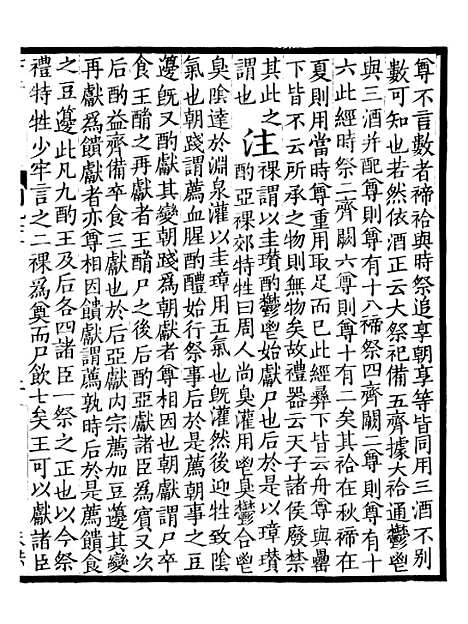 尊不言數者禘祫與時祭追享朝享等皆同用三酒不別
數可知也若然依酒正云大祭祀備五齊據大祫通鬱鬯
與三酒并配尊則尊有十八禘祭四齊闕二尊則尊有十
六此經時祭二齊闕六尊則尊十有二矣其祫在秋禘在
夏則用當時尊重用取足而已此經彝下皆云舟尊與罍
下皆不云所承之物則無物矣故禮器云天子諸侯廢禁
其此之注祼謂以圭瓚酌鬱鬯始獻尸也后於是以璋瓚
謂也酌亞祼郊特牲曰周人尚臭灌用鬯臭鬱合鬯
臭陰達於淵泉灌以圭璋用玉氣也旣灌然後迎牲致陰
氣也朝踐謂薦血腥酌醴始行祭事后於是薦朝事之豆
籩旣又酌獻其變朝踐爲朝獻者尊相因也朝獻謂尸卒
食王酳之再獻者王酳尸之後后酌亞獻諸臣爲賓又次
后酌盎齊備卒食三獻也於后亞獻內宗薦加豆籩其變
再獻爲饋獻者亦尊相因饋獻謂薦孰時后於是薦饋食
之豆籩此凡九酌王及后各四諸臣一祭之正也以今祭
禮特牲少牢言之二祼爲奠而尸飲七矣王可以獻諸臣